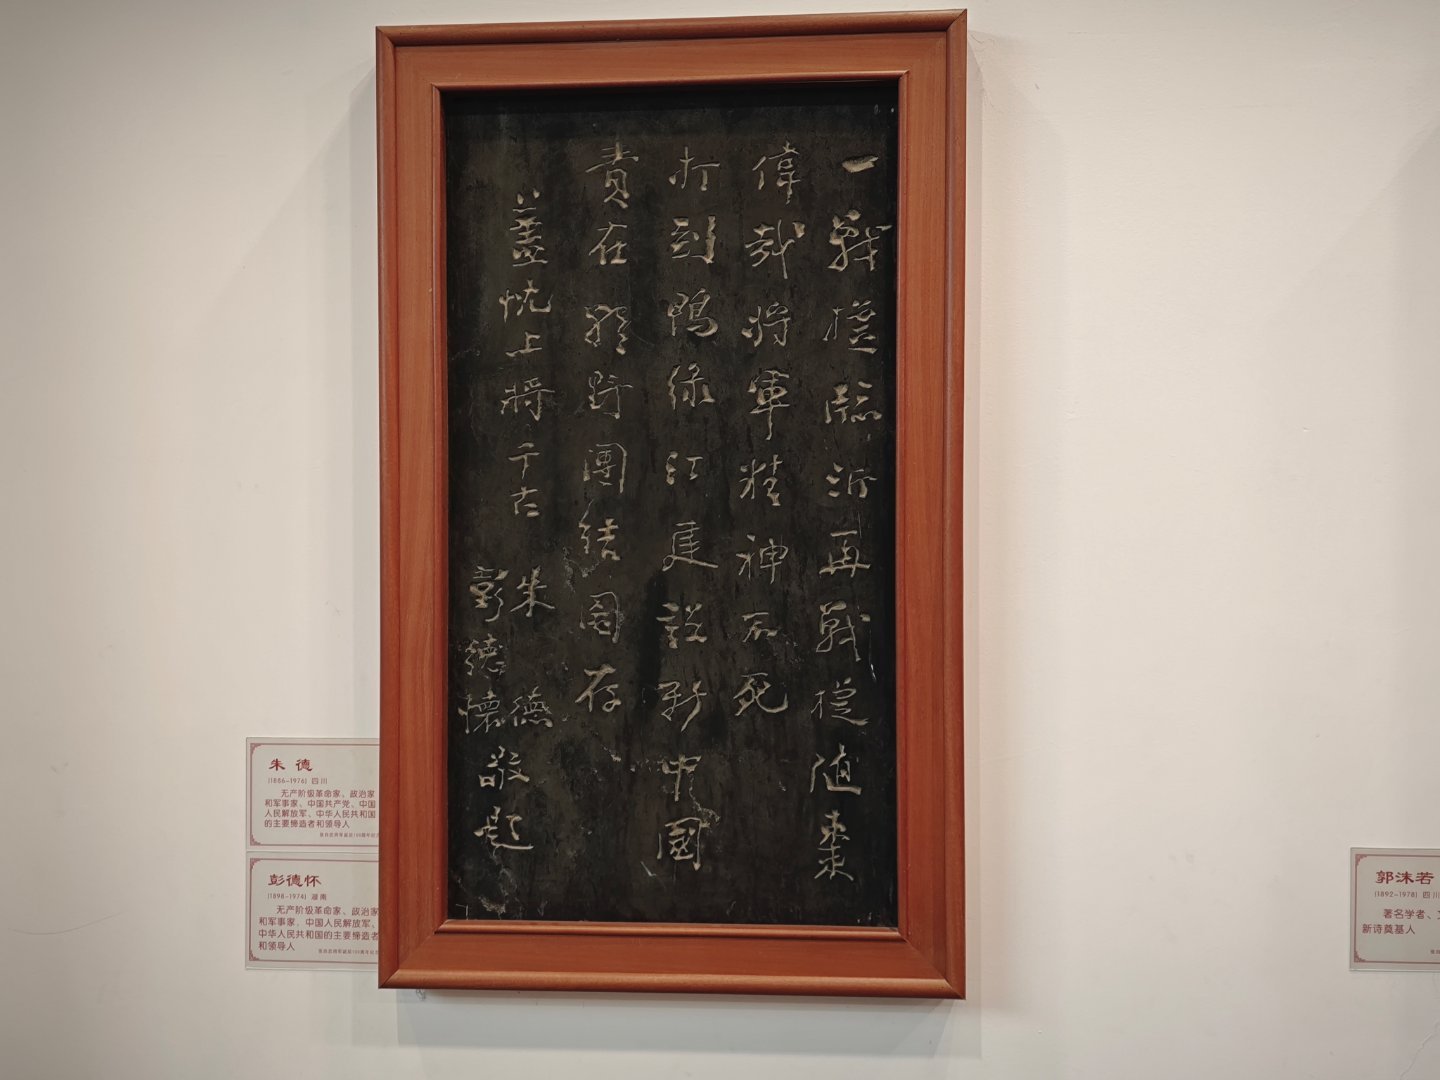 一戰捷臨沂再戰捷随棗
偉哉將軍精神不死
打到鴨綠江建設新中國
責在我輩團結圖存
藎忱上將千古
朱德
彭德懷敬題
朱 德
(1886-1976) 四川
无产阶级革命家、政治家
和军事家、中国共产党、中国
人民解放军、中华人民共和国
的主要缔造者和领导人
彭德怀
(1898-1974) 湖南
无产阶级革命家、政治家
和军事家，中国人民解放军、
中华人民共和国的主要缔造者
和领导人
郭沫若
(1892-1978) 四川
著名学者、
新诗奠基人